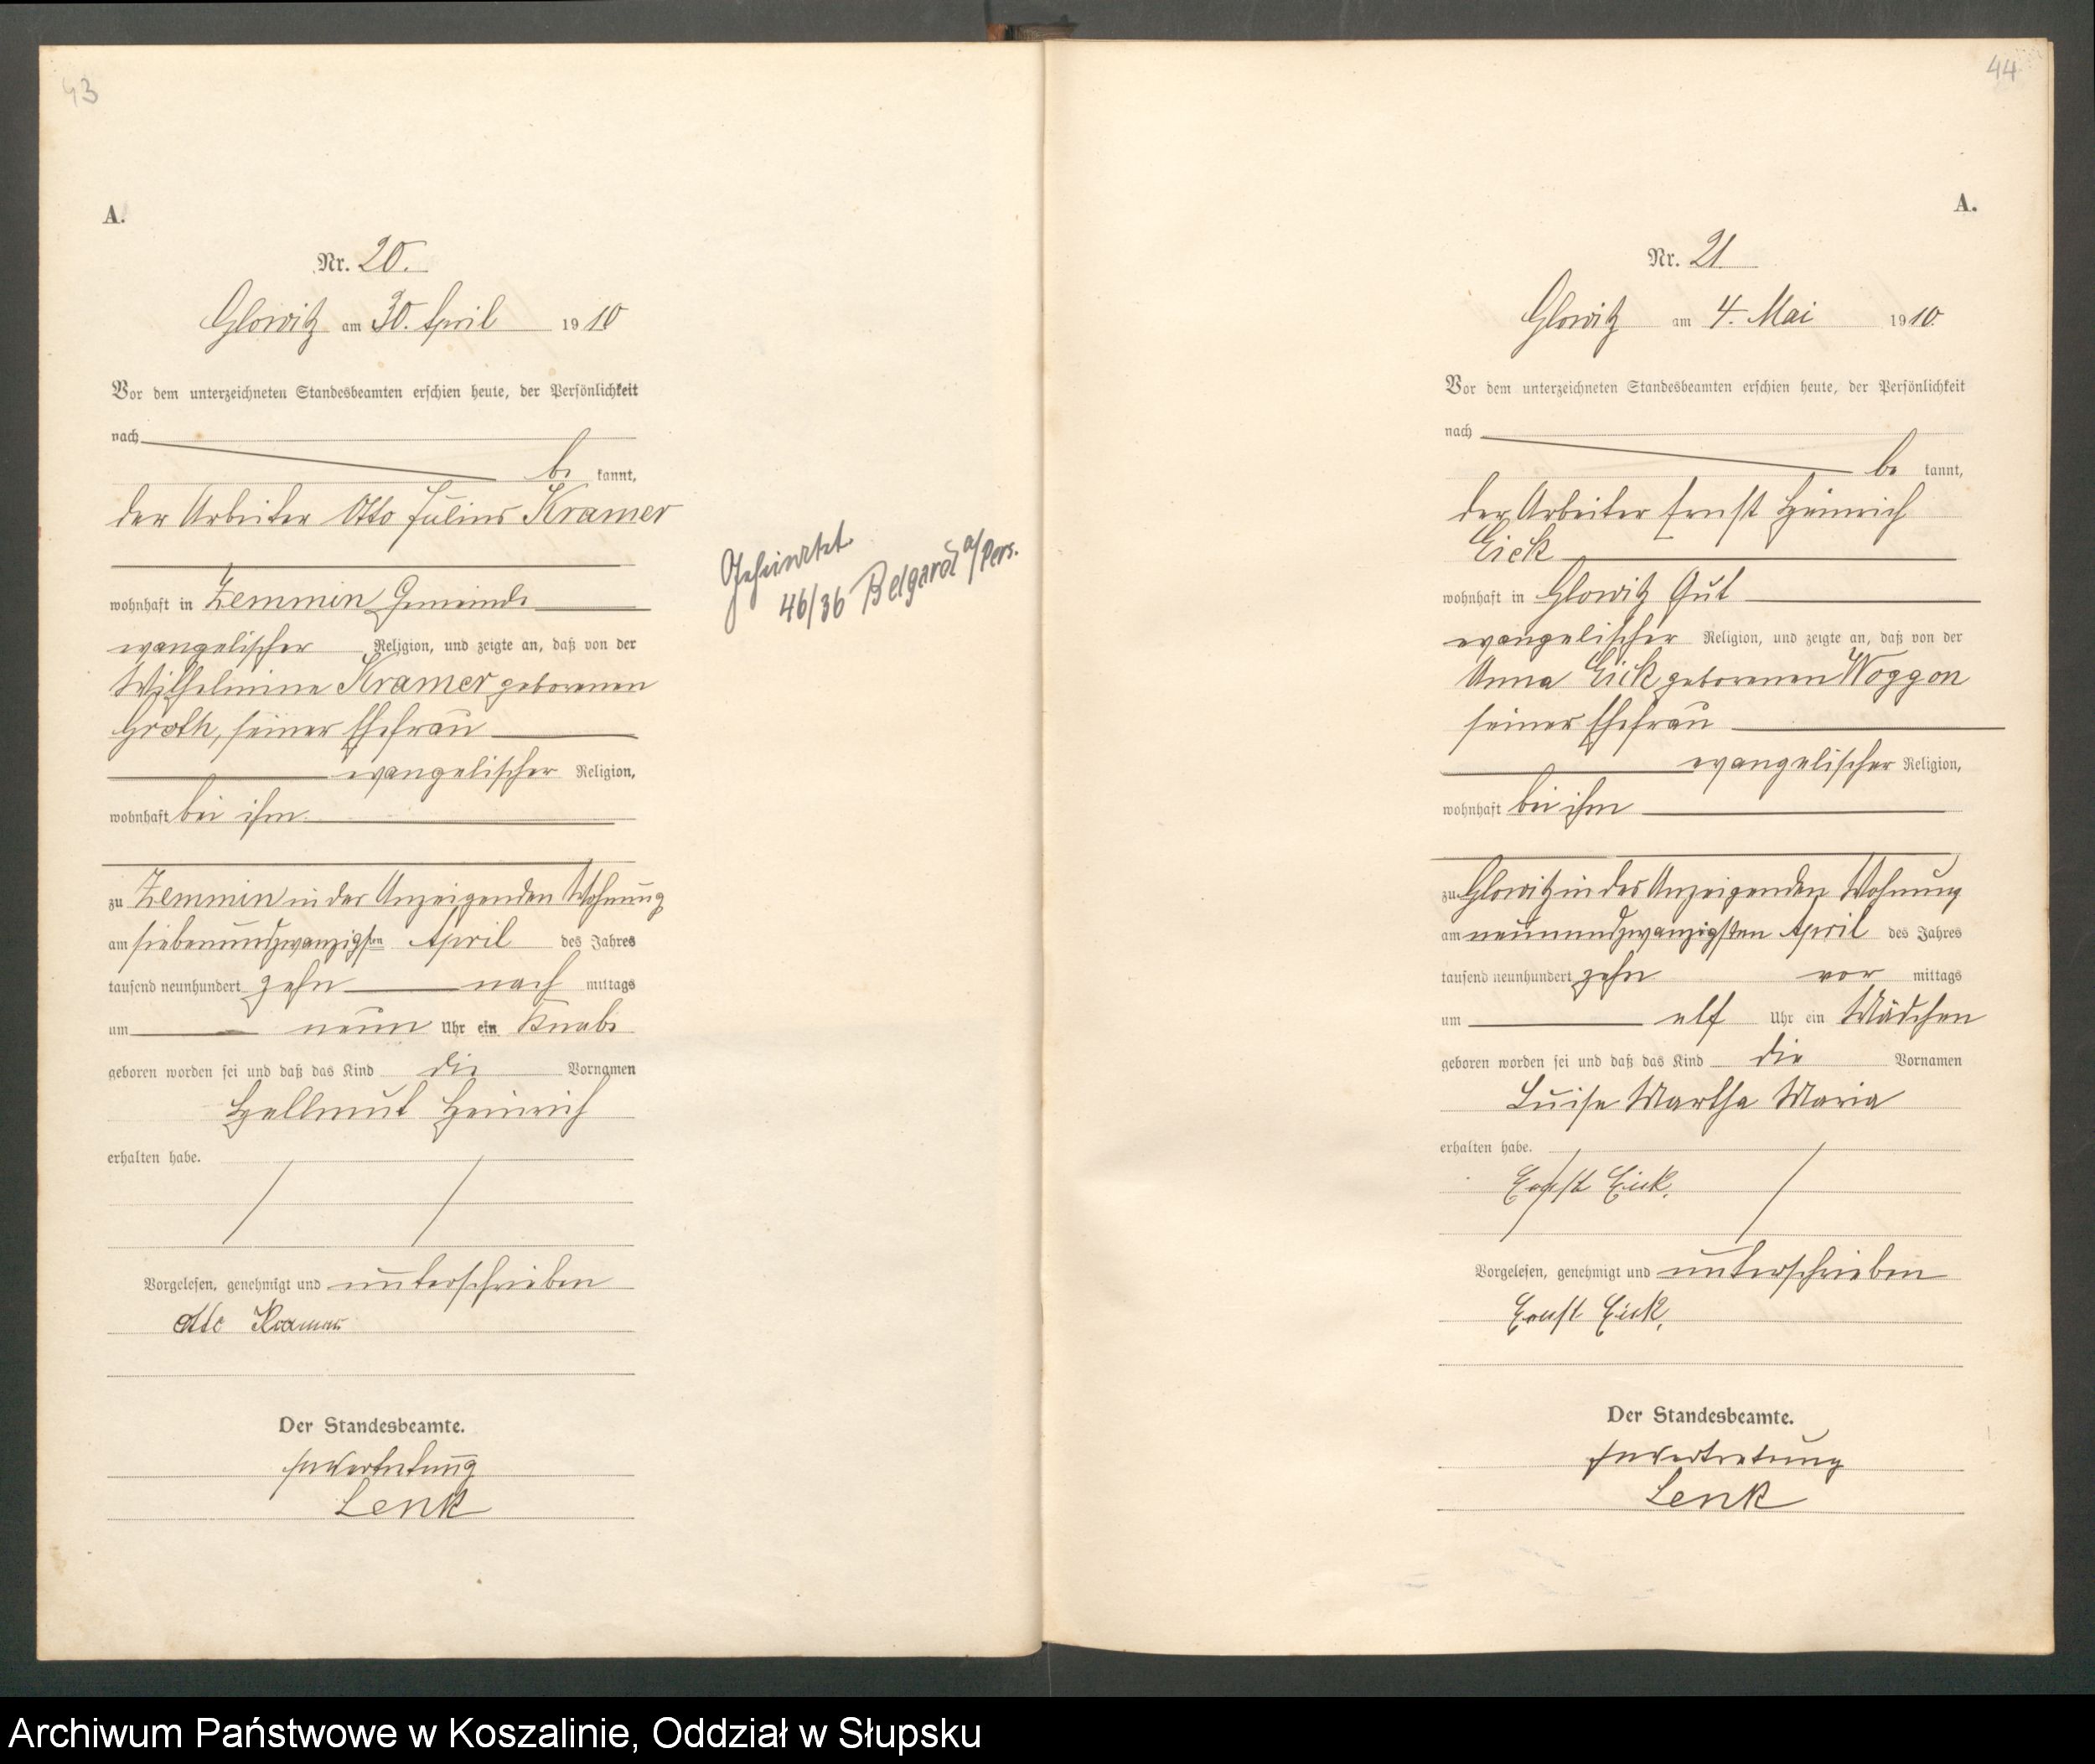 43
A.
Nr. 20.
Glowitz am 30. April 1910
Vor dem unterzeichneten Standesbeamten erschien heute, der Persönlichkeit
nach
be kannt,
der Arbeiter Otto Julius Kramer
wohnhaft in Zemmin Gemeinde
evangelischer Religion, und zeigte an, daß von der
Wilhelmine Kramer geborenen
Groth, seiner Ehefrau
evangelischer Religion,
wohnhaft bei ihm
zu Zemmin in der Anzeigenden Wohnung
am siebenundzwanzigsten April des Jahres
tausend neunhundert zehn nach mittags
um neun Uhr ein Knabe
geboren worden sei und daß das Kind die Vornamen
Hellmut Heinrich
erhalten habe.
Vorgelesen, genehmigt und unterschrieben
Otto Kramer
Der Standesbeamte.
In Vertretung
Lenk
Geheiratet
46/36 Belgard a/Pers.
44
A.
Nr. 21
Glowitz am 4. Mai 1910
Vor dem unterzeichneten Standesbeamten erschien heute, der Persönlichkeit
nach
be kannt,
der Arbeiter Ernst Heinrich
Eick
wohnhaft in Glowitz Gut
evangelischer Religion, und zeigte an, daß von der
Anna Eick geborenen Woggon
seiner Ehefrau
evangelischer Religion,
wohnhaft bei ihm
zu Glowitz in des Anzeigenden Wohnung
am neunundzwanzigsten April des Jahres
tausend neunhundert zehn vor mittags
um elf Uhr ein Mädchen
geboren worden sei und daß das Kind die Vornamen
Luise Martha Maria
erhalten habe.
Ernst Eick.
Vorgelesen, genehmigt und unterschrieben
Ernst Eick.
Der Standesbeamte.
In Vertretung
Lenk
Archiwum Państwowe w Koszalinie, Oddział w Słupsku